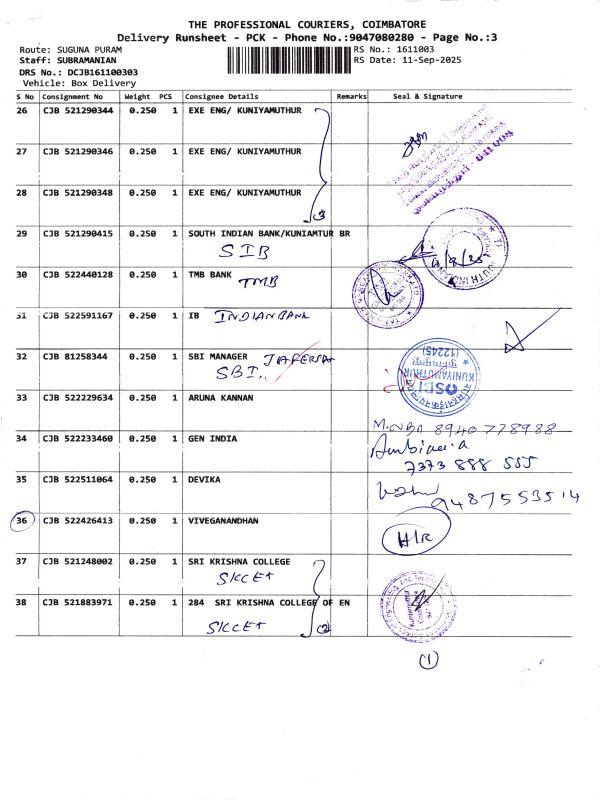 THE PROFESSIONAL COURIERS, COIMBATORE
Delivery Runsheet - PCK - Phone No.:9047080280 - Page No.:3
Route: SUGUNA PURAM RS No.: 1611003
Staff: SUBRAMANIAN RS Date: 11-Sep-2025
DRS No.: DCJB161100303
Vehicle: Box Delivery
S No Consignment No Weight PCS Consignee Details Remarks Seal & Signature
26 CJB 521290344 0.250 1 EXE ENG/ KUNIYAMUTHUR
27 CJB 521290346 0.250 1 EXE ENG/ KUNIYAMUTHUR
28 CJB 521290348 0.250 1 EXE ENG/ KUNIYAMUTHUR
3
29 CJB 521290415 0.250 1 SOUTH INDIAN BANK/KUNIAMTUR BR
SIB
30 CJB 522440128 0.250 1 TMB BANK
TMB
31 CJB 522591167 0.250 1 IB INDIAN BANK
32 CJB 81258344 0.250 1 SBI MANAGER
SBI
SBI
KUNIYAMUTHUR
(12245)
33 CJB 522229634 0.250 1 ARUNA KANNAN
8940778988
34 CJB 522233460 0.250 1 GEN INDIA
7373 888 555
35 CJB 522511064 0.250 1 DEVIKA
9487553514
36 CJB 522426413 0.250 1 VIVEGANANDHAN
H/R
37 CJB 521248002 0.250 1 SRI KRISHNA COLLEGE
SKCET
38 CJB 521883971 0.250 1 284 SRI KRISHNA COLLEGE OF EN
SKCET 2
1